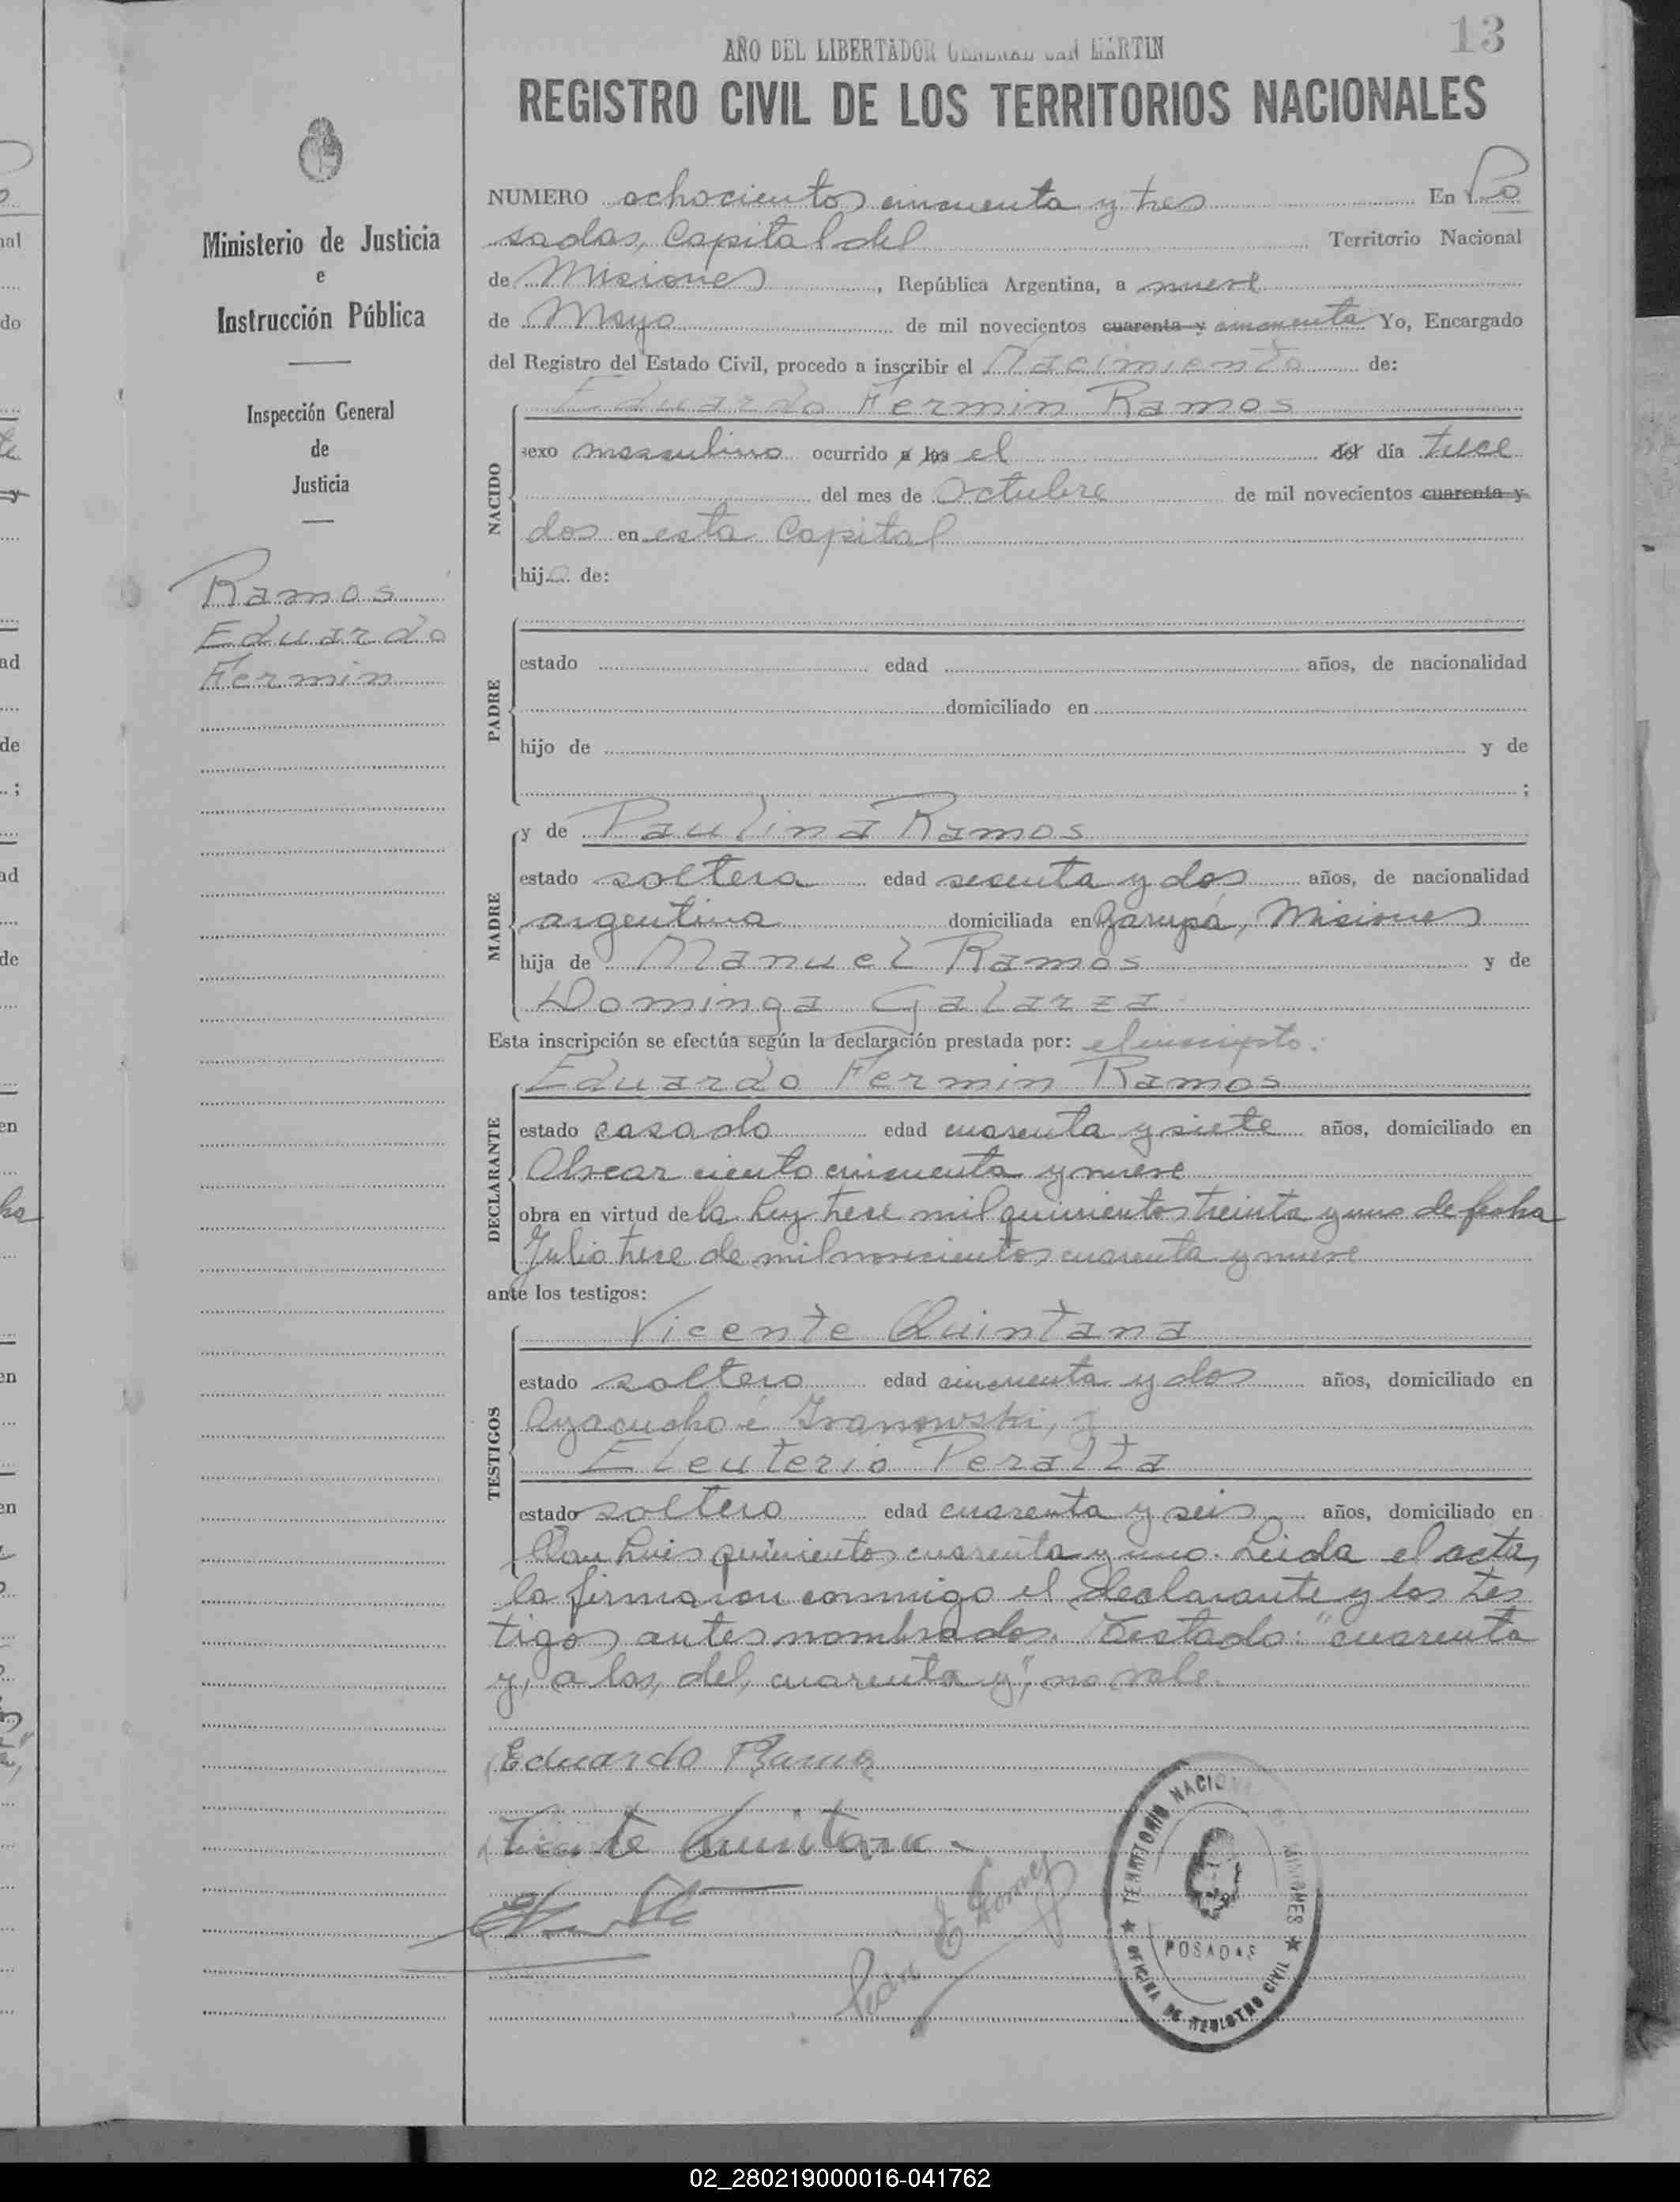 13
AÑO DEL LIBERTADOR GENERAL SAN MARTIN
REGISTRO CIVIL DE LOS TERRITORIOS NACIONALES
Ministerio de Justicia
e
Instrucción Pública
Inspección General
de
Justicia
Ramos
Eduardo
Fermin
NUMERO ochocientos cincuenta y tres En Po
sadas, Capital del Territorio Nacional
de Misiones, República Argentina, a nueve
de Mayo de mil novecientos cuarenta y cincuenta Yo, Encargado
del Registro del Estado Civil, procedo a inscribir el Nacimiento de:
NACIDO
Eduardo Fermin Ramos
sexo masculino ocurrido a las el del día trece
del mes de Octubre de mil novecientos cuarenta y
dos en esta Capital
hijo de:
PADRE
estado edad años, de nacionalidad
domiciliado en
hijo de y de
;
MADRE
y de Paulina Ramos
estado soltera edad sesenta y dos años, de nacionalidad
argentina domiciliada en Garupá, Misiones
hija de Manuel Ramos y de
Dominga Galarza
Esta inscripción se efectúa según la declaración prestada por: el inscripto.
DECLARANTE
Eduardo Fermin Ramos
estado casado edad cuarenta y siete años, domiciliado en
Alvear ciento cincuenta y nueve
obra en virtud de la Ley trece mil quinientos treinta y uno de fecha
Julio trece de mil novecientos cuarenta y nueve
ante los testigos:
TESTIGOS
Vicente Quintana
estado soltero edad cincuenta y dos años, domiciliado en
Ayacucho é Ivanowski, y
Eleuterio Peralta
estado soltero edad cuarenta y seis años, domiciliado en
San Luis quinientos cuarenta y uno. Leida el acta,
la firmaron conmigo el declarante y los tes
tigos antes nombrados. Testado: "cuarenta
y, a las, del, cuarenta y", no vale.
Eduardo Ramos
Vicente Quintana
Pedro E Gomez
TERRITORIO NACIONAL DE MISIONES
POSADAS
OFICINA DE REGISTRO CIVIL
02_280219000016-041762